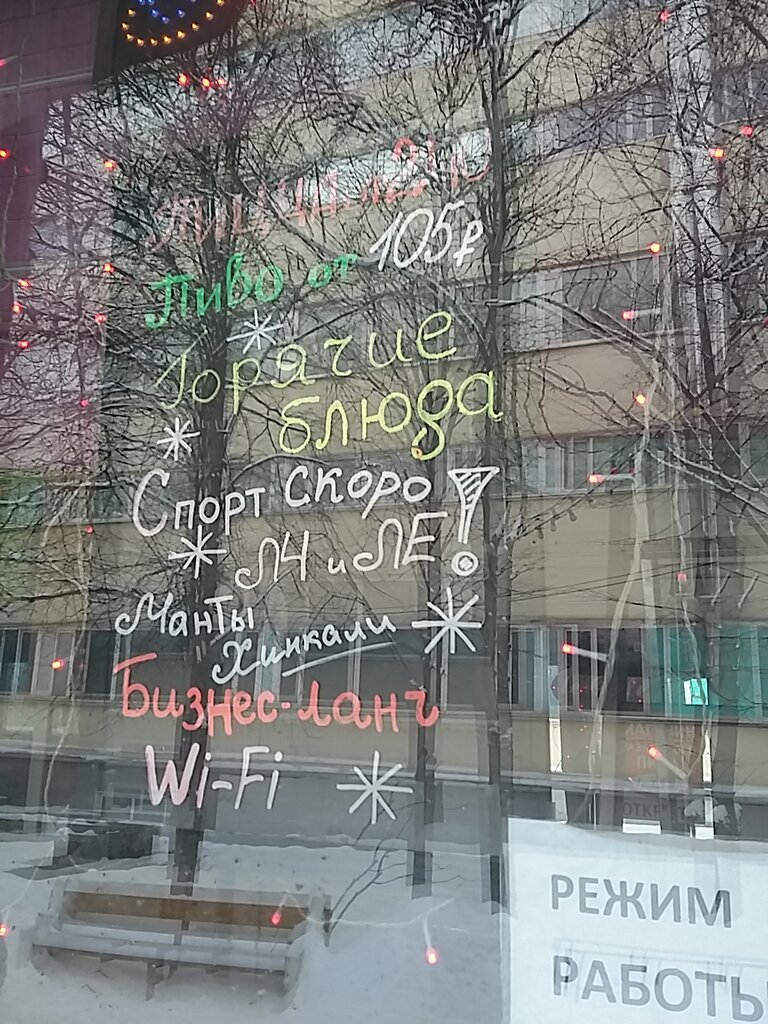 Пиво от 105₽
Горячие
блюда
Спорт скоро!
ЛЧ и ЛЕ
Манты
Хинкали
Бизнес-ланч
Wi-Fi
РЕЖИМ
РАБОТЫ